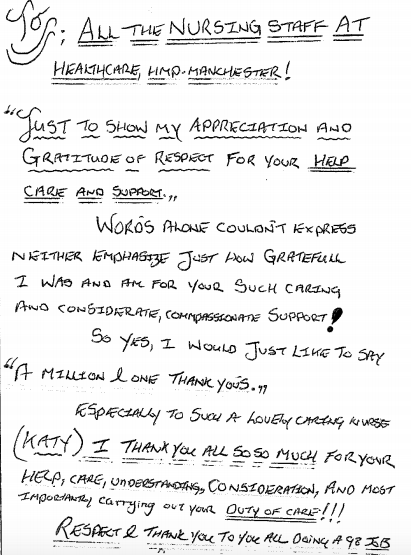 To; ALL THE NURSING STAFF AT
HEALTHCARE, HMP-MANCHESTER!
"JUST TO SHOW MY APPRECIATION AND
GRATITUDE OF RESPECT FOR YOUR HELP
CARE AND SUPPORT.,,
WORDS ALONE COULDN'T EXPRESS
NEITHER EMPHASIZE JUST HOW GRATEFULL
I WAS AND AM FOR YOUR SUCH CARING
AND CONSIDERATE, COMMPASSIONATE SUPPORT!
SO YES, I WOULD JUST LIKE TO SAY
"A MILLION & ONE THANK YOU'S.,,
ESPECIALLY TO SUCH A LOVELY CARING NURSE
(KATY) I THANK YOU ALL SO SO MUCH FOR YOUR
HELP, CARE, UNDERSTANDING, CONSIDERATION, AND MOST
IMPORTANTLY CARRYING OUT YOUR DUTY OF CARE!!!
RESPECT & THANK YOU TO YOU ALL DOING A GB JOB